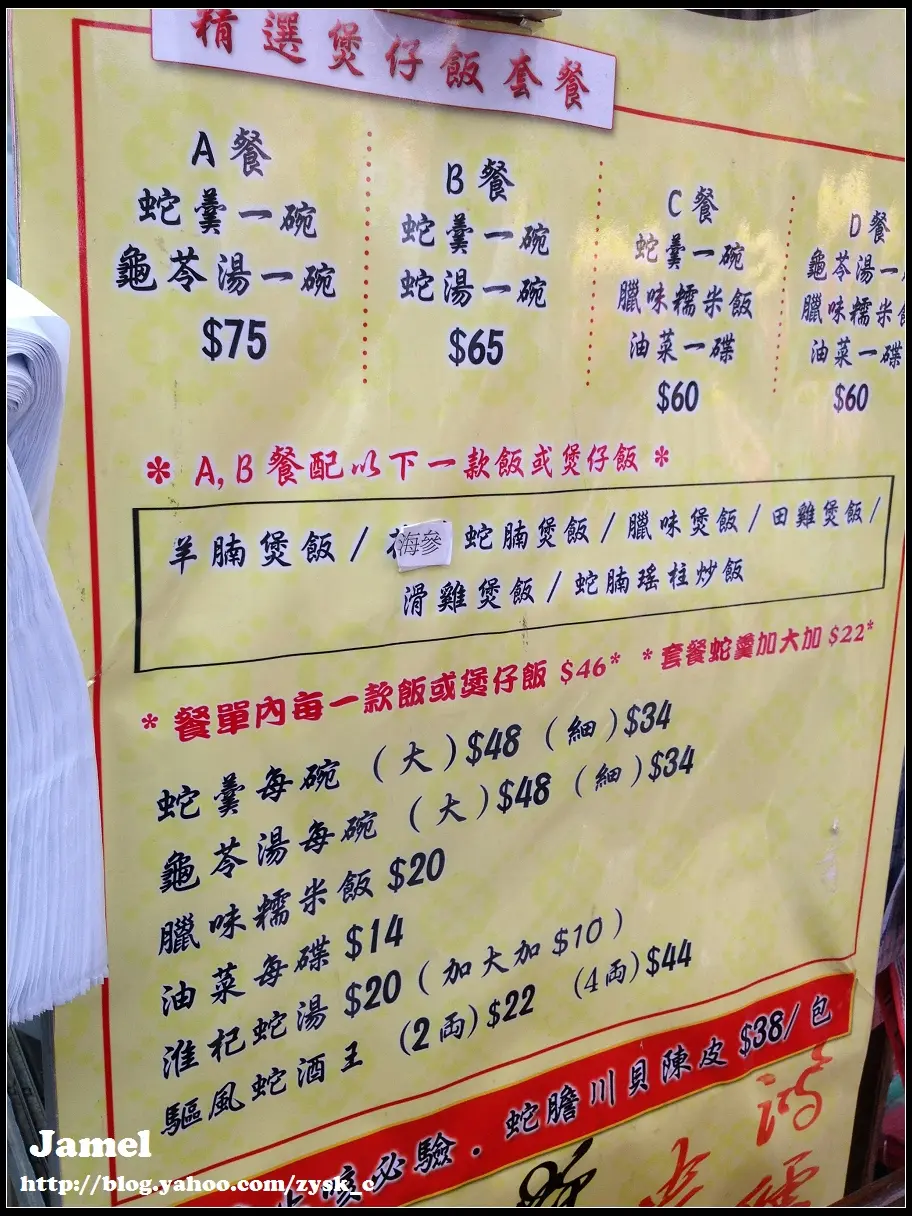 精選煲仔飯套餐
A餐
蛇羹一碗
龜苓湯一碗
$75
B餐
蛇羹一碗
蛇湯一碗
$65
C餐
蛇羹一碗
臘味糯米飯
油菜一碟
$60
D餐
龜苓湯一
臘味糯米飯
油菜一碟
$60
* A,B餐配以下一款飯或煲仔飯 *
羊腩煲飯/ 海參 蛇腩煲飯/臘味煲飯/田雞煲飯/
滑雞煲飯/蛇腩瑤柱炒飯
*餐單內每一款飯或煲仔飯 $46* *套餐蛇羹加大加 $22*
蛇羹每碗 (大)$48 (細)$34
龜苓湯每碗 (大)$48 (細)$34
臘味糯米飯 $20
油菜每碟 $14
淮杞蛇湯 $20(加大加 $10)
驅風蛇酒王 (2両)$22 (4両)$44
咳必驗．蛇膽川貝陳皮 $38/包
Jamel
http://blog.yahoo.com/zysk_c